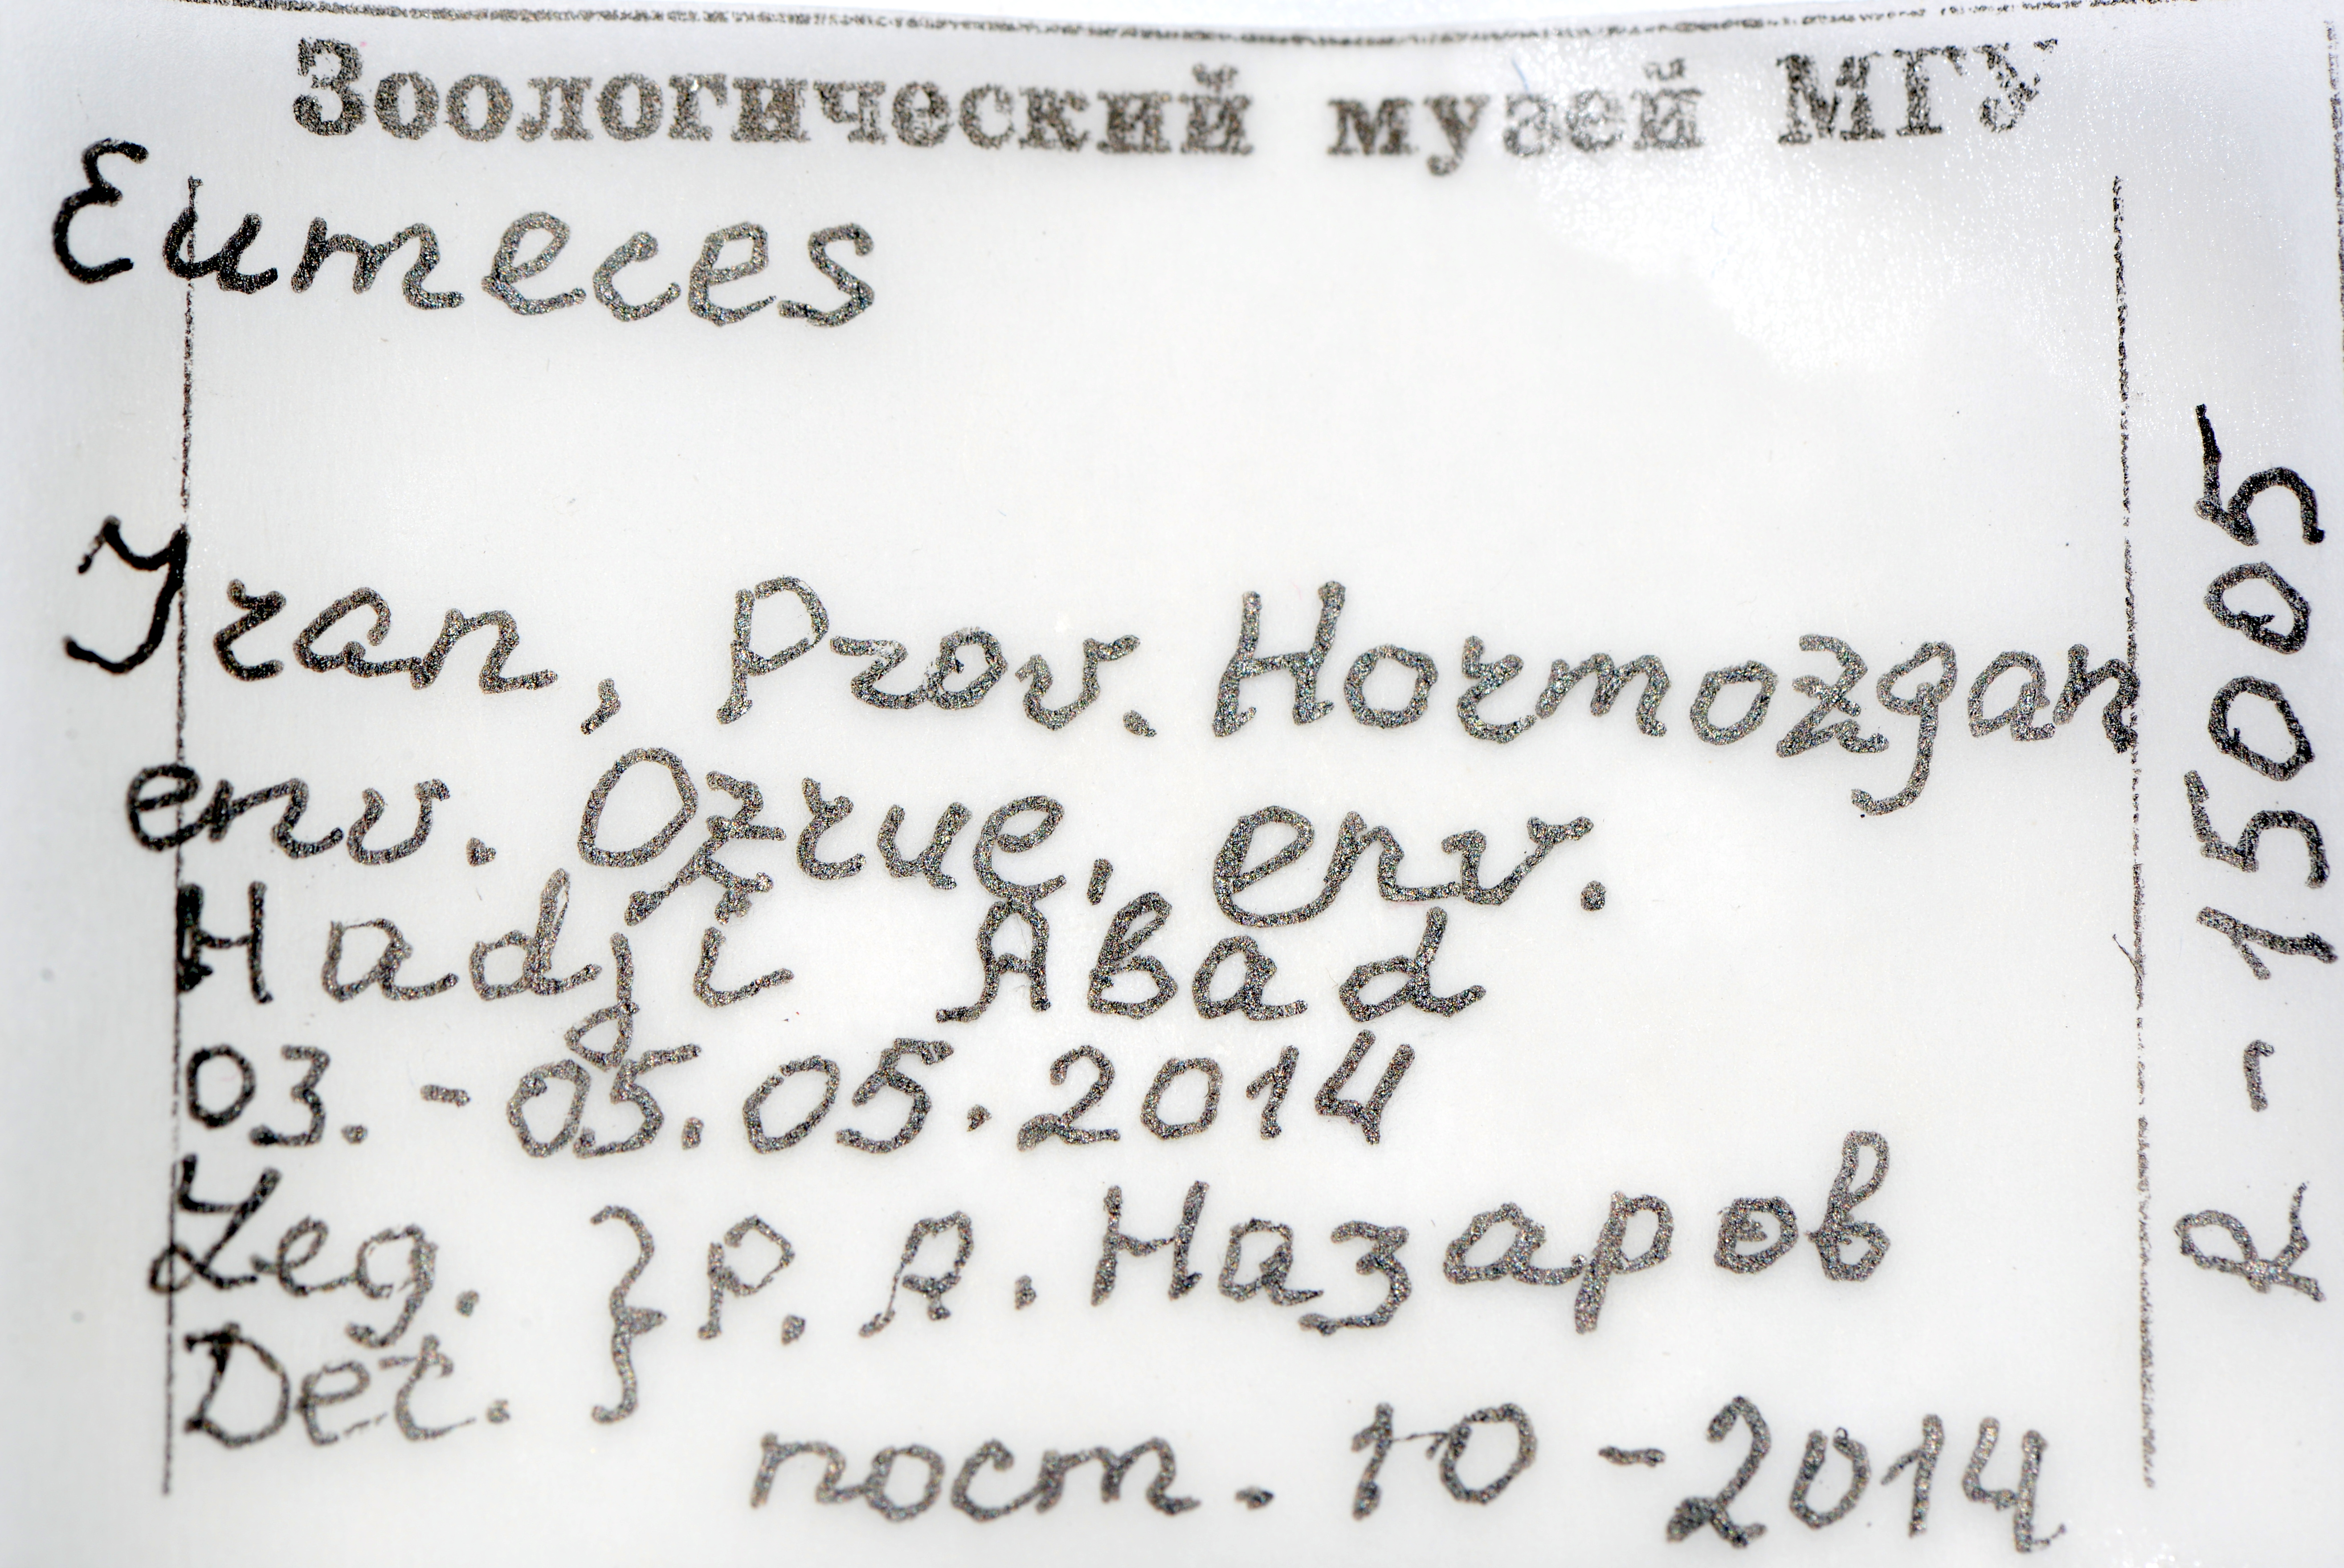 Зоологический музей МГУ
Eumeces
Iran, Prov. Hormozgan
env. Ozrue, env.
Hadji Abad
03. - 05.05.2014
Leg. } Р. А. Назаров
Det.
пост. 10-2014
R - 15005